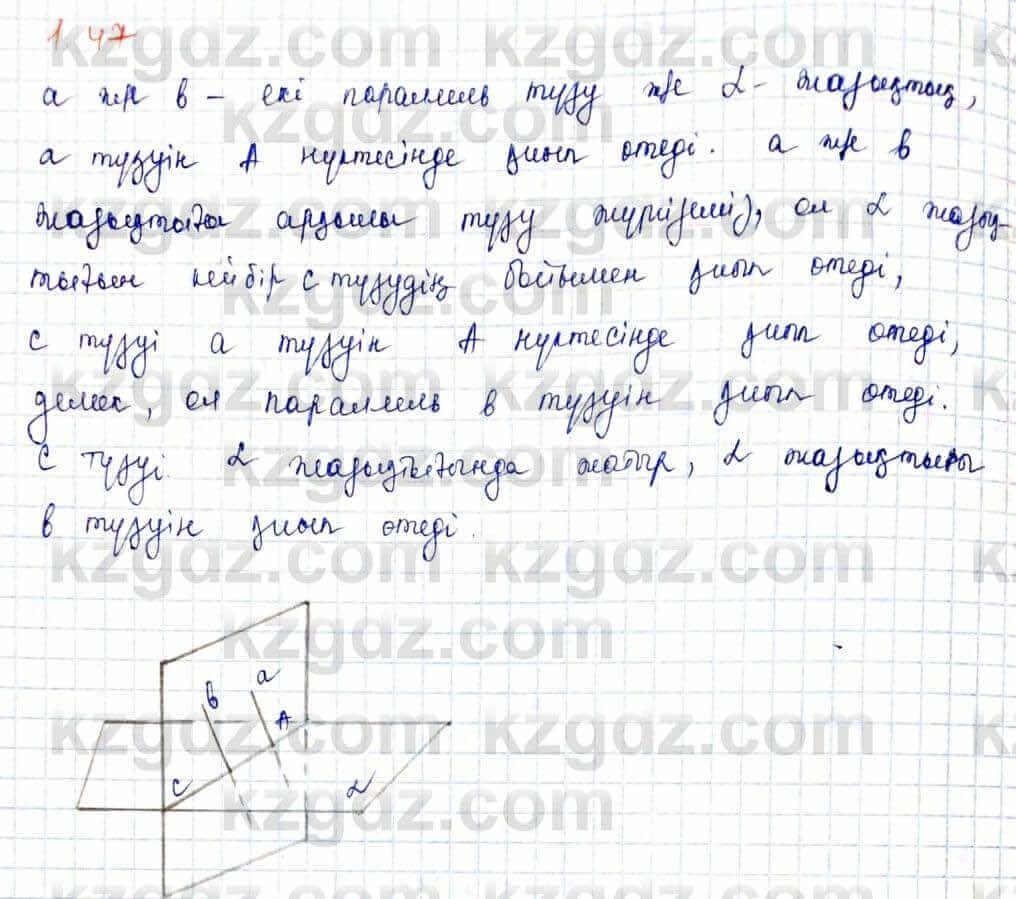 1.47
kzgdz.com
а ж/е в – екі параллель түзу ж/е α - жазықтық,
а түзуін А нүктесінде қиып өтеді. а ж/е в
жазықтығы арқылы түзу жүргіземіз, ол α жазық-
тығын кейбір с түзудің бойымен қиып өтеді,
с түзуі а түзуін А нүктесінде қиып өтеді,
демек, ол параллель в түзуін қиып өтеді.
с түзуі α жазықтығында жатыр, α жазықтығы
в түзуін қиып өтеді.
kzgdz.com
в а
А
с
α